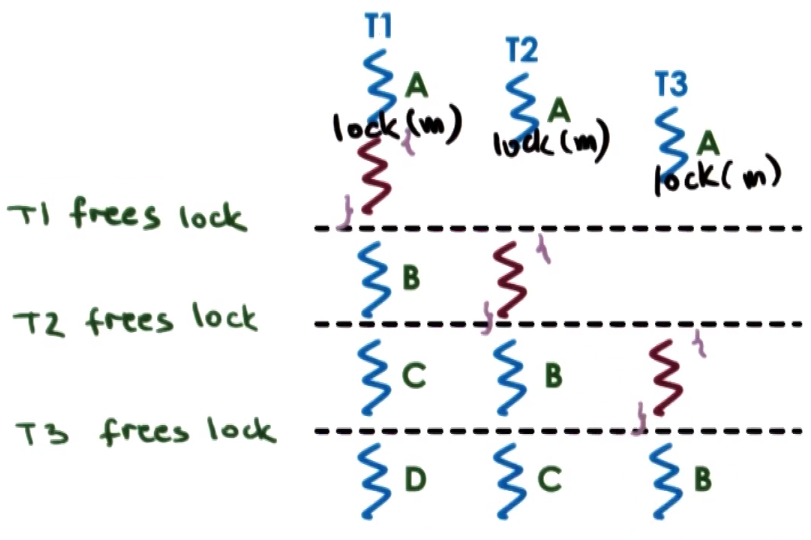 T1
T2
T3
A
A
A
lock(m) {
lock(m)
lock(m)
}
T1 frees lock
B
{
T2 frees lock
}
C
B
{
T3 frees lock
}
D
C
B